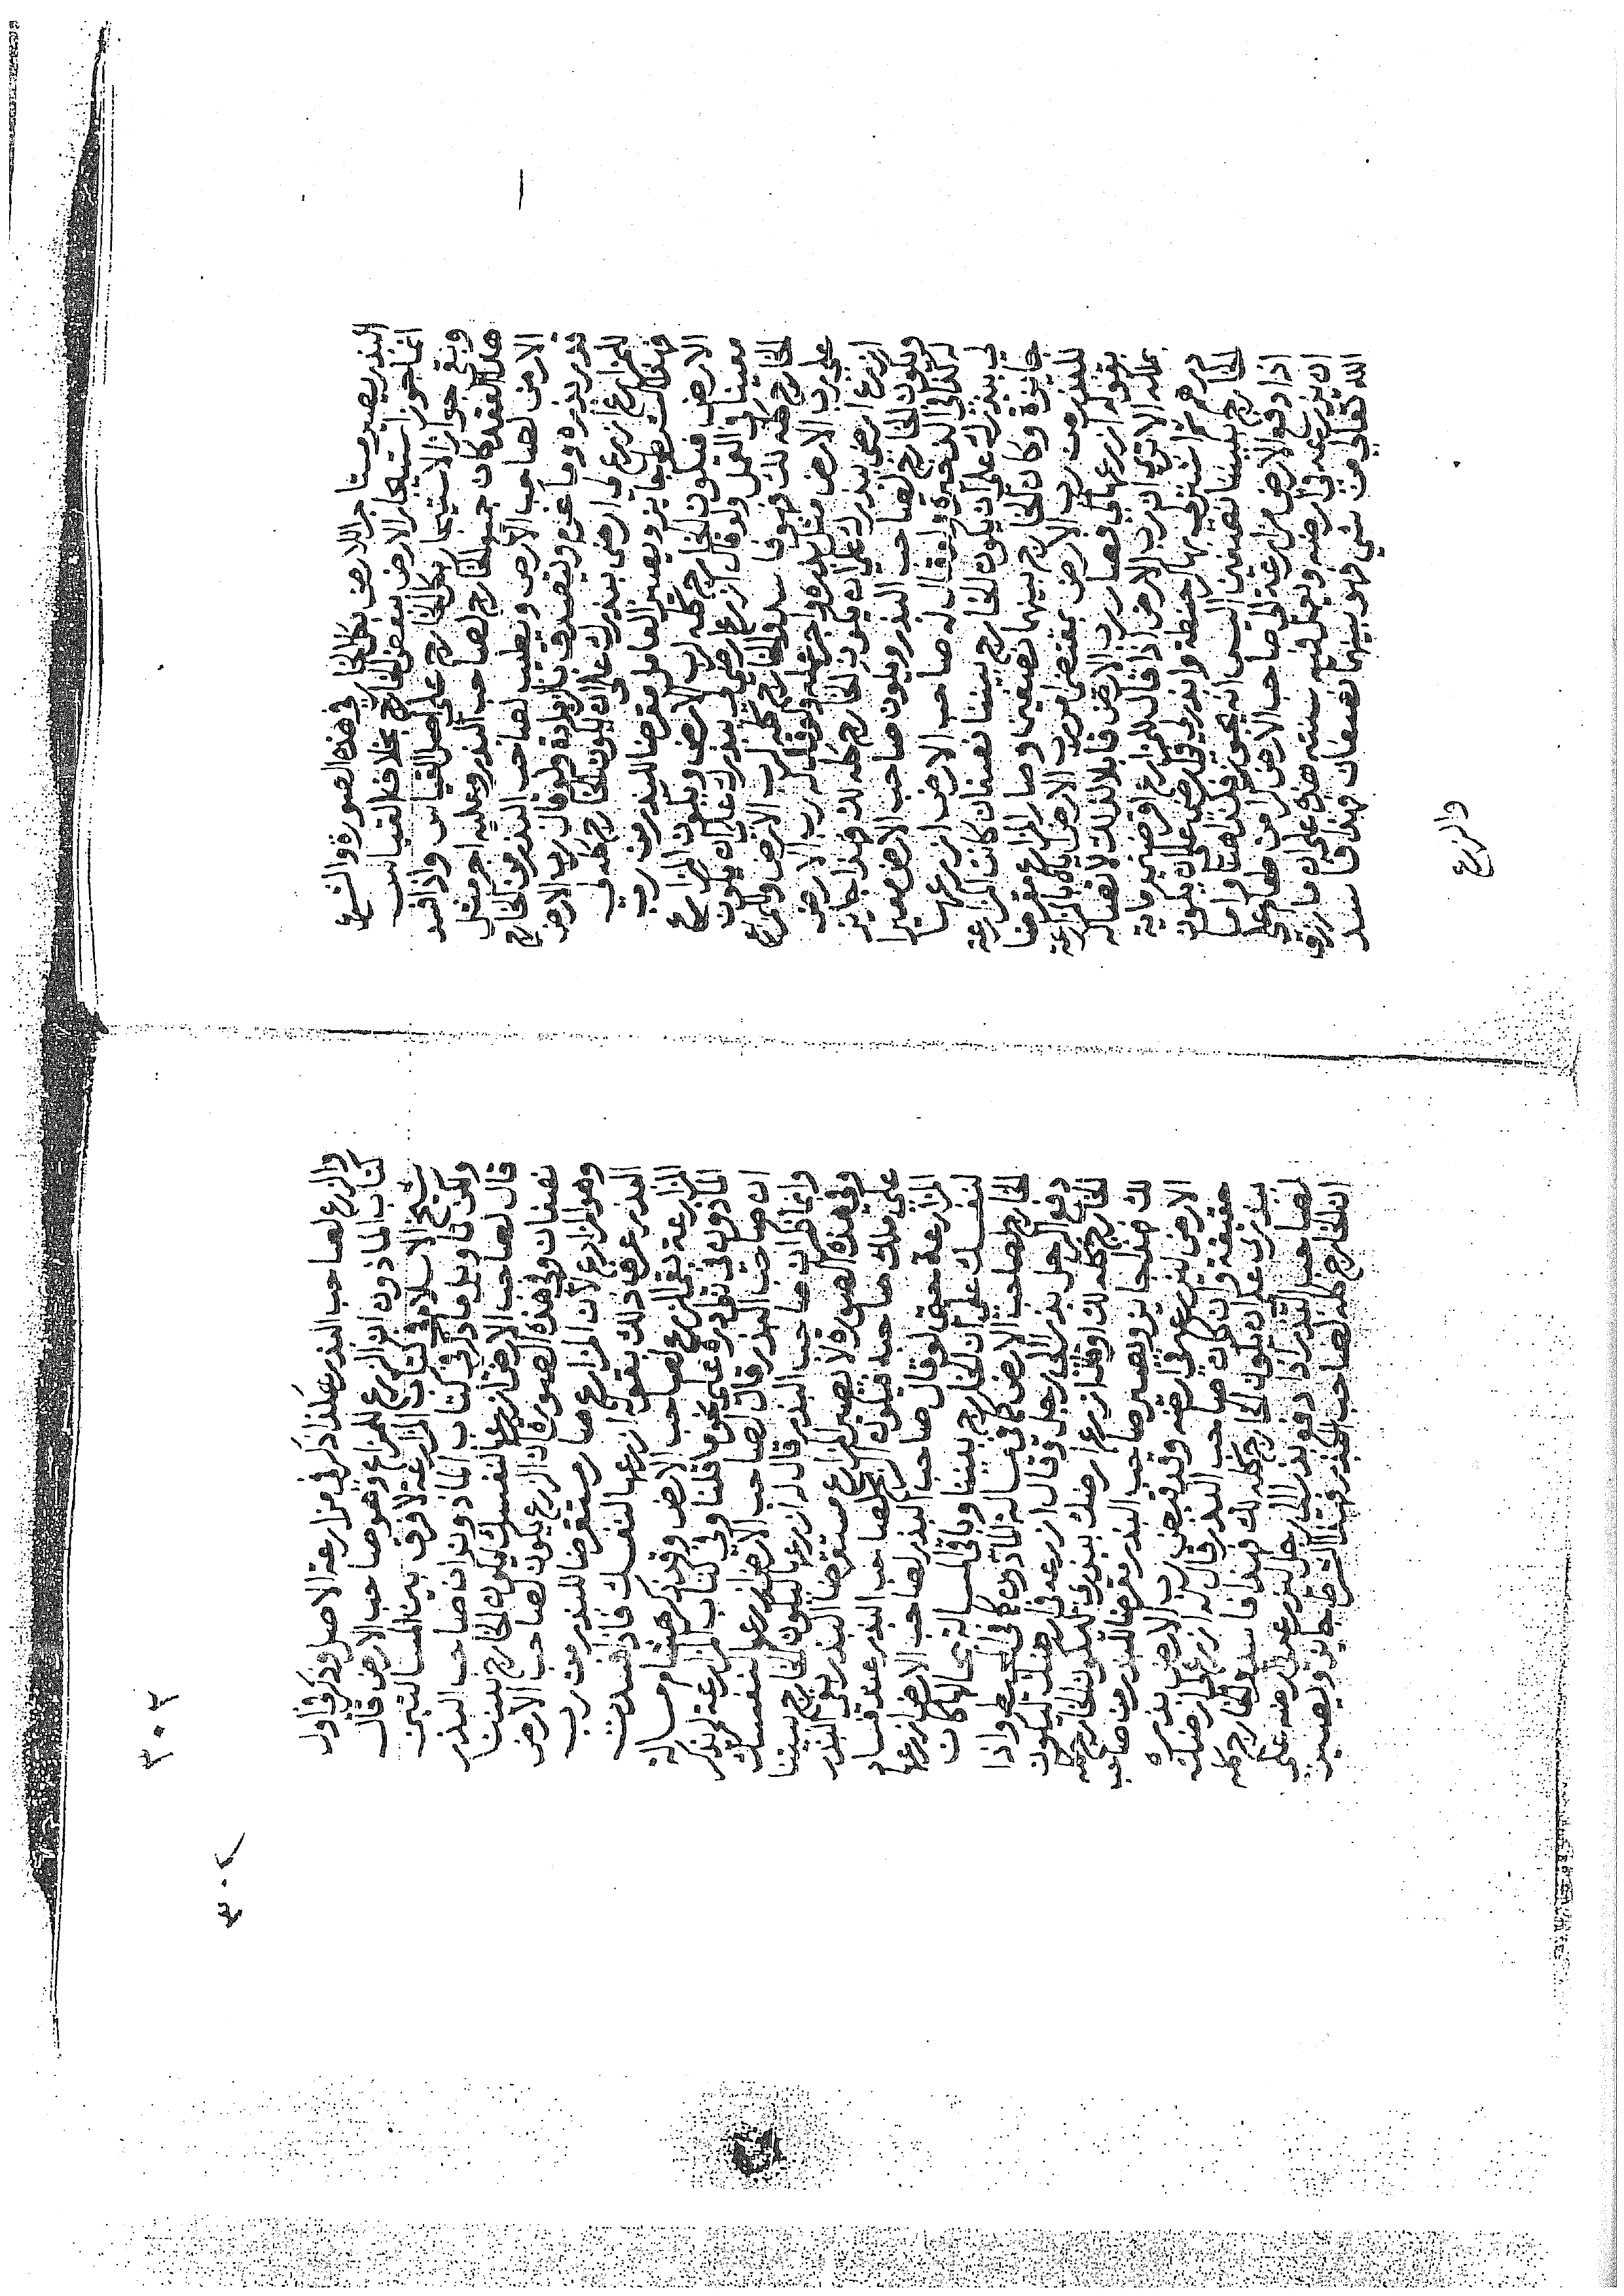 البذر يصير مستاجرا للارض بكل الخارج في هذه الصورة والشرع
انما جوز استيجار الارض ببعض الخارج بخلاف القياس
وبقي جواز الاستيجار بكل الخارج على اصل القياس واذا فسد
هذا العقد كان جميع الخارج لصاحب البذر وعليه اجر مثل
الارض لصاحب الارض ويطيب لصاحب البذر من الخارج
قدر بذره وما غرم ويتصدق بالزيادة ولو قال رب الارض
للمزارع ازرع لي ارضي ببذرك على ان يكون الخارج كله لي
فهذا الشرط جايز ويصير العامل مقرضا للبذر من رب
الارض فيكون الخارج كله لرب الارض ويكون المزارع
معينا في العمل ولو قال ازرع لي ارضي ببذرك على ان يكون
الخارج كله لك فهو فاسد والخارج كله لرب الارض وللمزارع
على رب الارض مثل بذره واجر عمله ولو قال له رب الارض
ازرع ارضي ببذرك على ان يكون الخارج كله لك فهذا جايز
ويكون الخارج لصاحب البذر ويكون صاحب الارض معيرا
له كذا في الذخيرة ولو قال له صاحب الارض ازرعها
لي ببذرك على ان يكون الخارج بيننا نصفان كانت المزارعة
جايزة وكان الخارج بينهما نصفين وصار المزارع مقرضا
للبذر من رب الارض بمقتضى امر رب الارض اياه بالزراعة
بقوله ازرعها لي فصار رب الارض قابلا لذلك لاتصاله
بملكه الا ترى ان رب الارض اذا قال للمزارع اقرضني مايه
درهم ثم اشتري بها كر حنطة وابذر لي في ارضي على ان يكون
الخارج بيننا نصفين اليس انه يجوز فكذا هنا واما
اذا دفع الارض مزارعة الى صاحب الارض كرا من طعام على
ان يزرعه في ارضه ويعمل فيه سنته هذه على ان ما رزق
الله تعالى من شي فهو بينهما نصفان فهذا فاسد
والزرع
٣٠٢
٣٠٢
والزرع لصاحب البذر هكذا ذكر في مزارعة الاصل وذكر في اول
كتاب الماذون ان الزرع للمزارع وهو صاحب الارض قال
شيخ الاسلام في كتاب المزارعة لا فرق بين المسالتين
ولكن تاويل ما ذكر في كتاب الماذون ان صاحب البذر
قال لصاحب الارض ازرعها لنفسك ليكون الخارج بيننا
نصفان وفي هذه الصورة ان الزرع يكون لصاحب الارض
وهو المزارع لان المزارع صار مستقرضا للبذر من رب
البذر عرفنا ذلك بقوله ازرعها لنفسك فاذا فسدت
المزارعة بقي الزرع لصاحب الارض وقد ذكر هشام مسالة
الماذون في نوادره على نحو ما قلنا وفي كتاب المزارعة لم يذكر
ان صاحب البذر قال لصاحب الارض ازرعها لنفسك
وانما ذكر ان صاحب البذر قال له ازرعها ليكون الخارج بيننا
وفي هذه الصورة لا يصير المزارع مستقرضا للبذر بقي البذر
على ملك صاحبه فيكون الخارج لصاحب البذر عند فساد
المزارعة حتى لو قال صاحب البذر لصاحب الارض ازرعها
لنفسك على ان الخارج بيننا وباقي المسالة بحالها كان
الخارج لصاحب الارض كما في مسالة الماذون كما في المحيط واذا
دفع الرجل بذرا الى رجل وقال ازرعه في ارضك ليكون
الخارج كله لك او قال ازرع ارضك ببذري ليكون الخارج كله
لك فهذا جايز ويصير صاحب البذر مقرضا للبذر من صاحب
الارض ليزرعها في ارضه وقد قبض رب الارض بذره
حقيقة وان كان صاحب البذر قال له ازرع لي في ارضك
ببذري على ان يكون الخارج كله لك فهذا فاسد والخارج كله
لصاحب البذر اذا دفع بذرا الى رجل ليزرعه في ارضه على
ان الخارج كله لصاحب البذر فهذا الشرط جايز ويصير